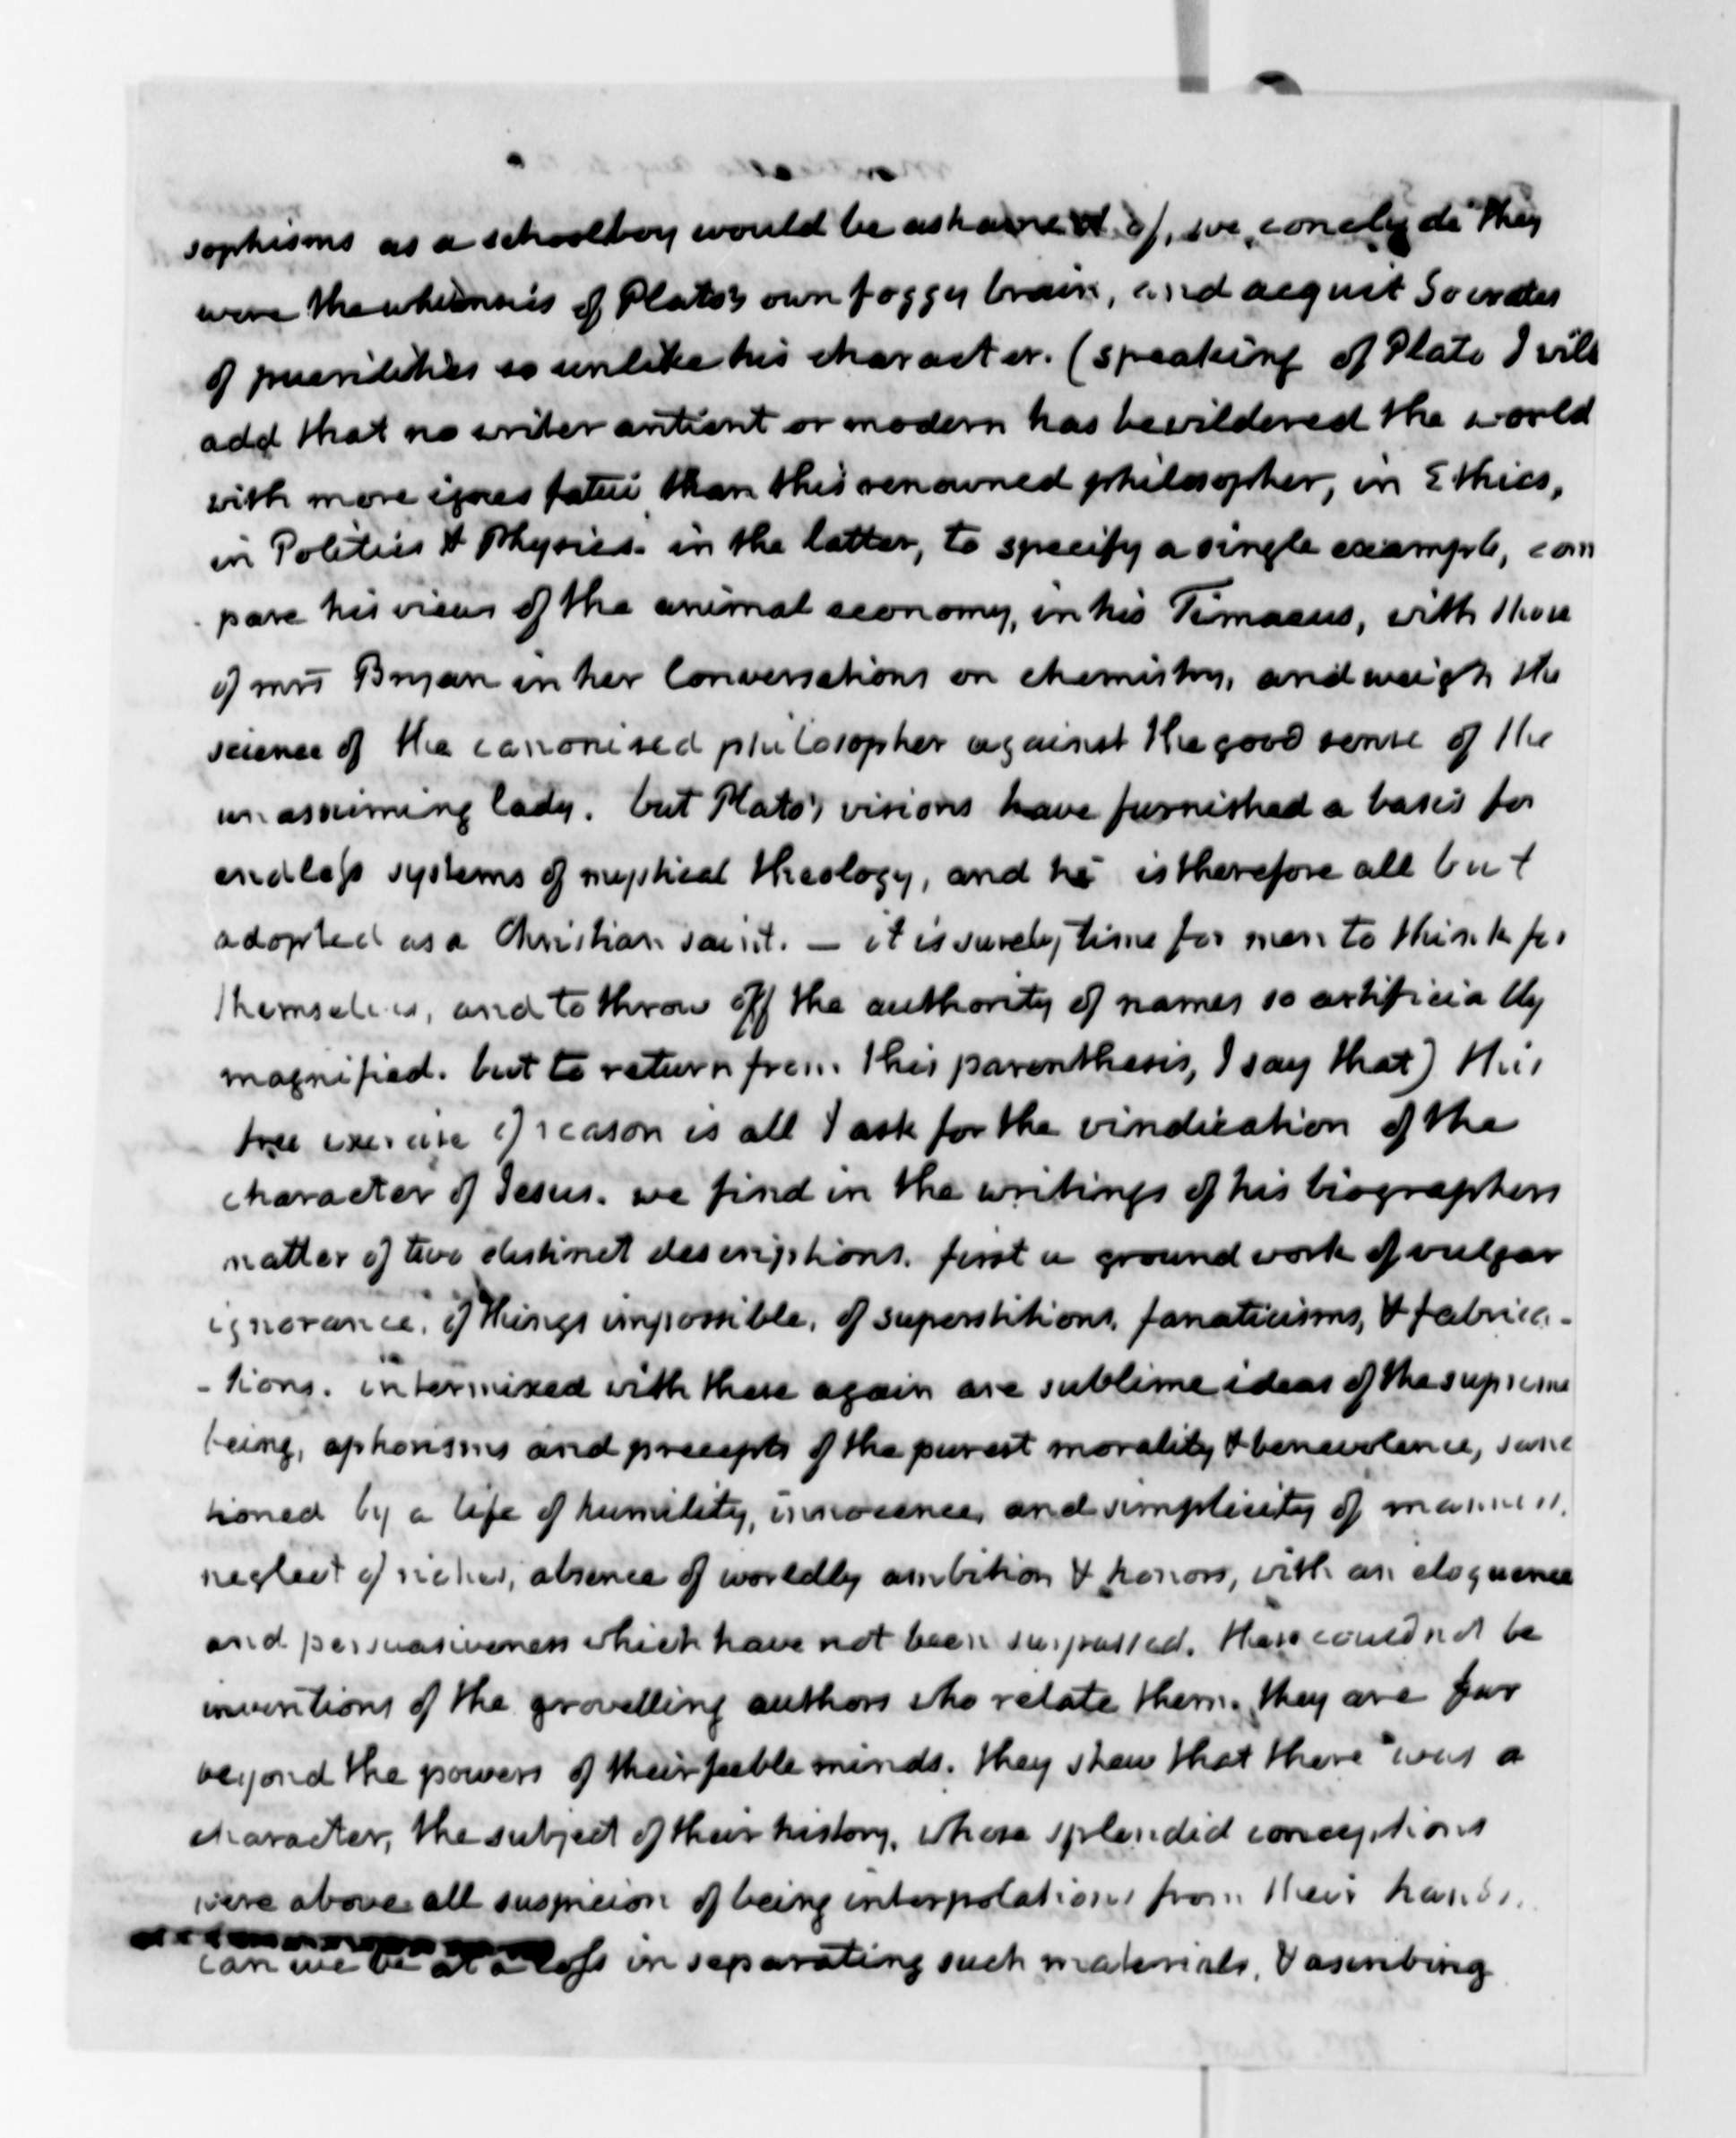 sophisms as a schoolboy would be ashamed of, we conclude they
were the whimsies of Plato's own foggy brain, and acquit Socrates
of puerilities so unlike his character. (speaking of Plato I will
add that no writer antient or modern has bewildered the world
with more ignes fatui than this renowned philosopher, in Ethics,
in Politics & Physics. in the latter, to specify a single example, com
pare his views of the animal economy, in his Timaeus, with those
of mrs Bryan in her Conversations on chemistry, and weigh the
science of the canonised philosopher against the good sense of the
unassuming lady. but Plato's visions have furnished a basis for
endless systems of mystical theology, and he is therefore all but
adopted as a Christian saint. — it is surely time for men to think for
themselves, and to throw off the authority of names so artificially
magnified. but to return from this parenthesis, I say that) this
free exercise of reason is all I ask for the vindication of the
character of Jesus. we find in the writings of his biographers
matter of two distinct descriptions. first a ground work of vulgar
ignorance, of things impossible, of superstitions, fanaticisms, & fabrica-
-tions. intermixed with these again are sublime ideas of the supreme
being, aphorisms and precepts of the purest morality & benevolence, sanc
tioned by a life of humility, innocence, and simplicity of manners,
neglect of riches, absence of worldly ambition & honors, with an eloquence
and persuasiveness which have not been surpassed. these could not be
inventions of the grovelling authors who relate them. they are far
beyond the powers of their feeble minds. they shew that there was a
character, the subject of their history, whose splendid conceptions
were above all suspicion of being interpolations from their hands.
can we be at a loss in separating such materials, & ascribing